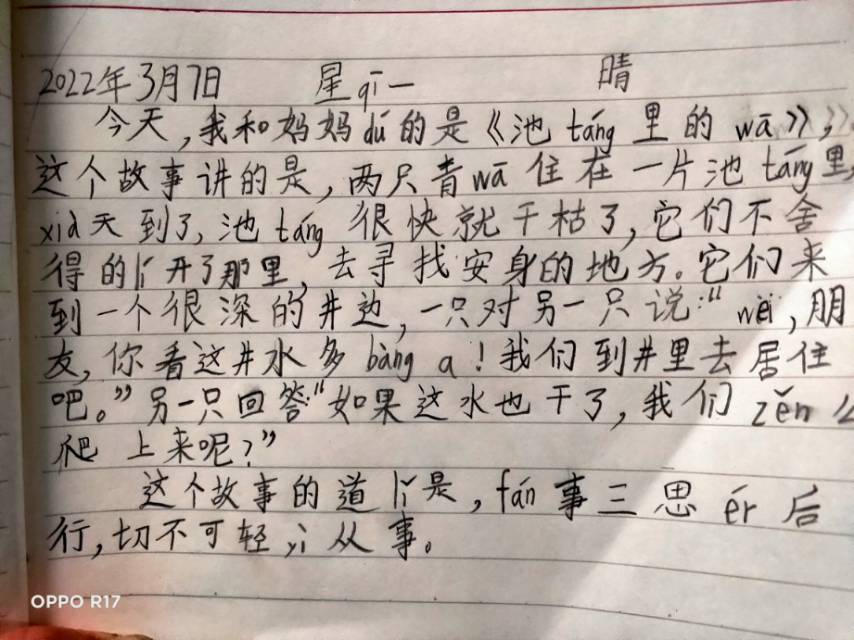 2022年3月7日 星qī一 晴
今天,我和妈妈dú的是《池táng里的wā》,
这个故事讲的是,两只青wā住在一片池táng里,
xià天到了,池táng很快就干枯了,它们不舍
得的lí开了那里,去寻找安身的地方。它们来
到一个很深的井边,一只对另一只说:"wèi,朋
友,你看这井水多bàng a!我们到井里去居住
吧。"另一只回答:"如果这水也干了,我们zěn么
爬上来呢?"
这个故事的道lǐ是,fán事三思ér后
行,切不可轻yì从事。
OPPO R17